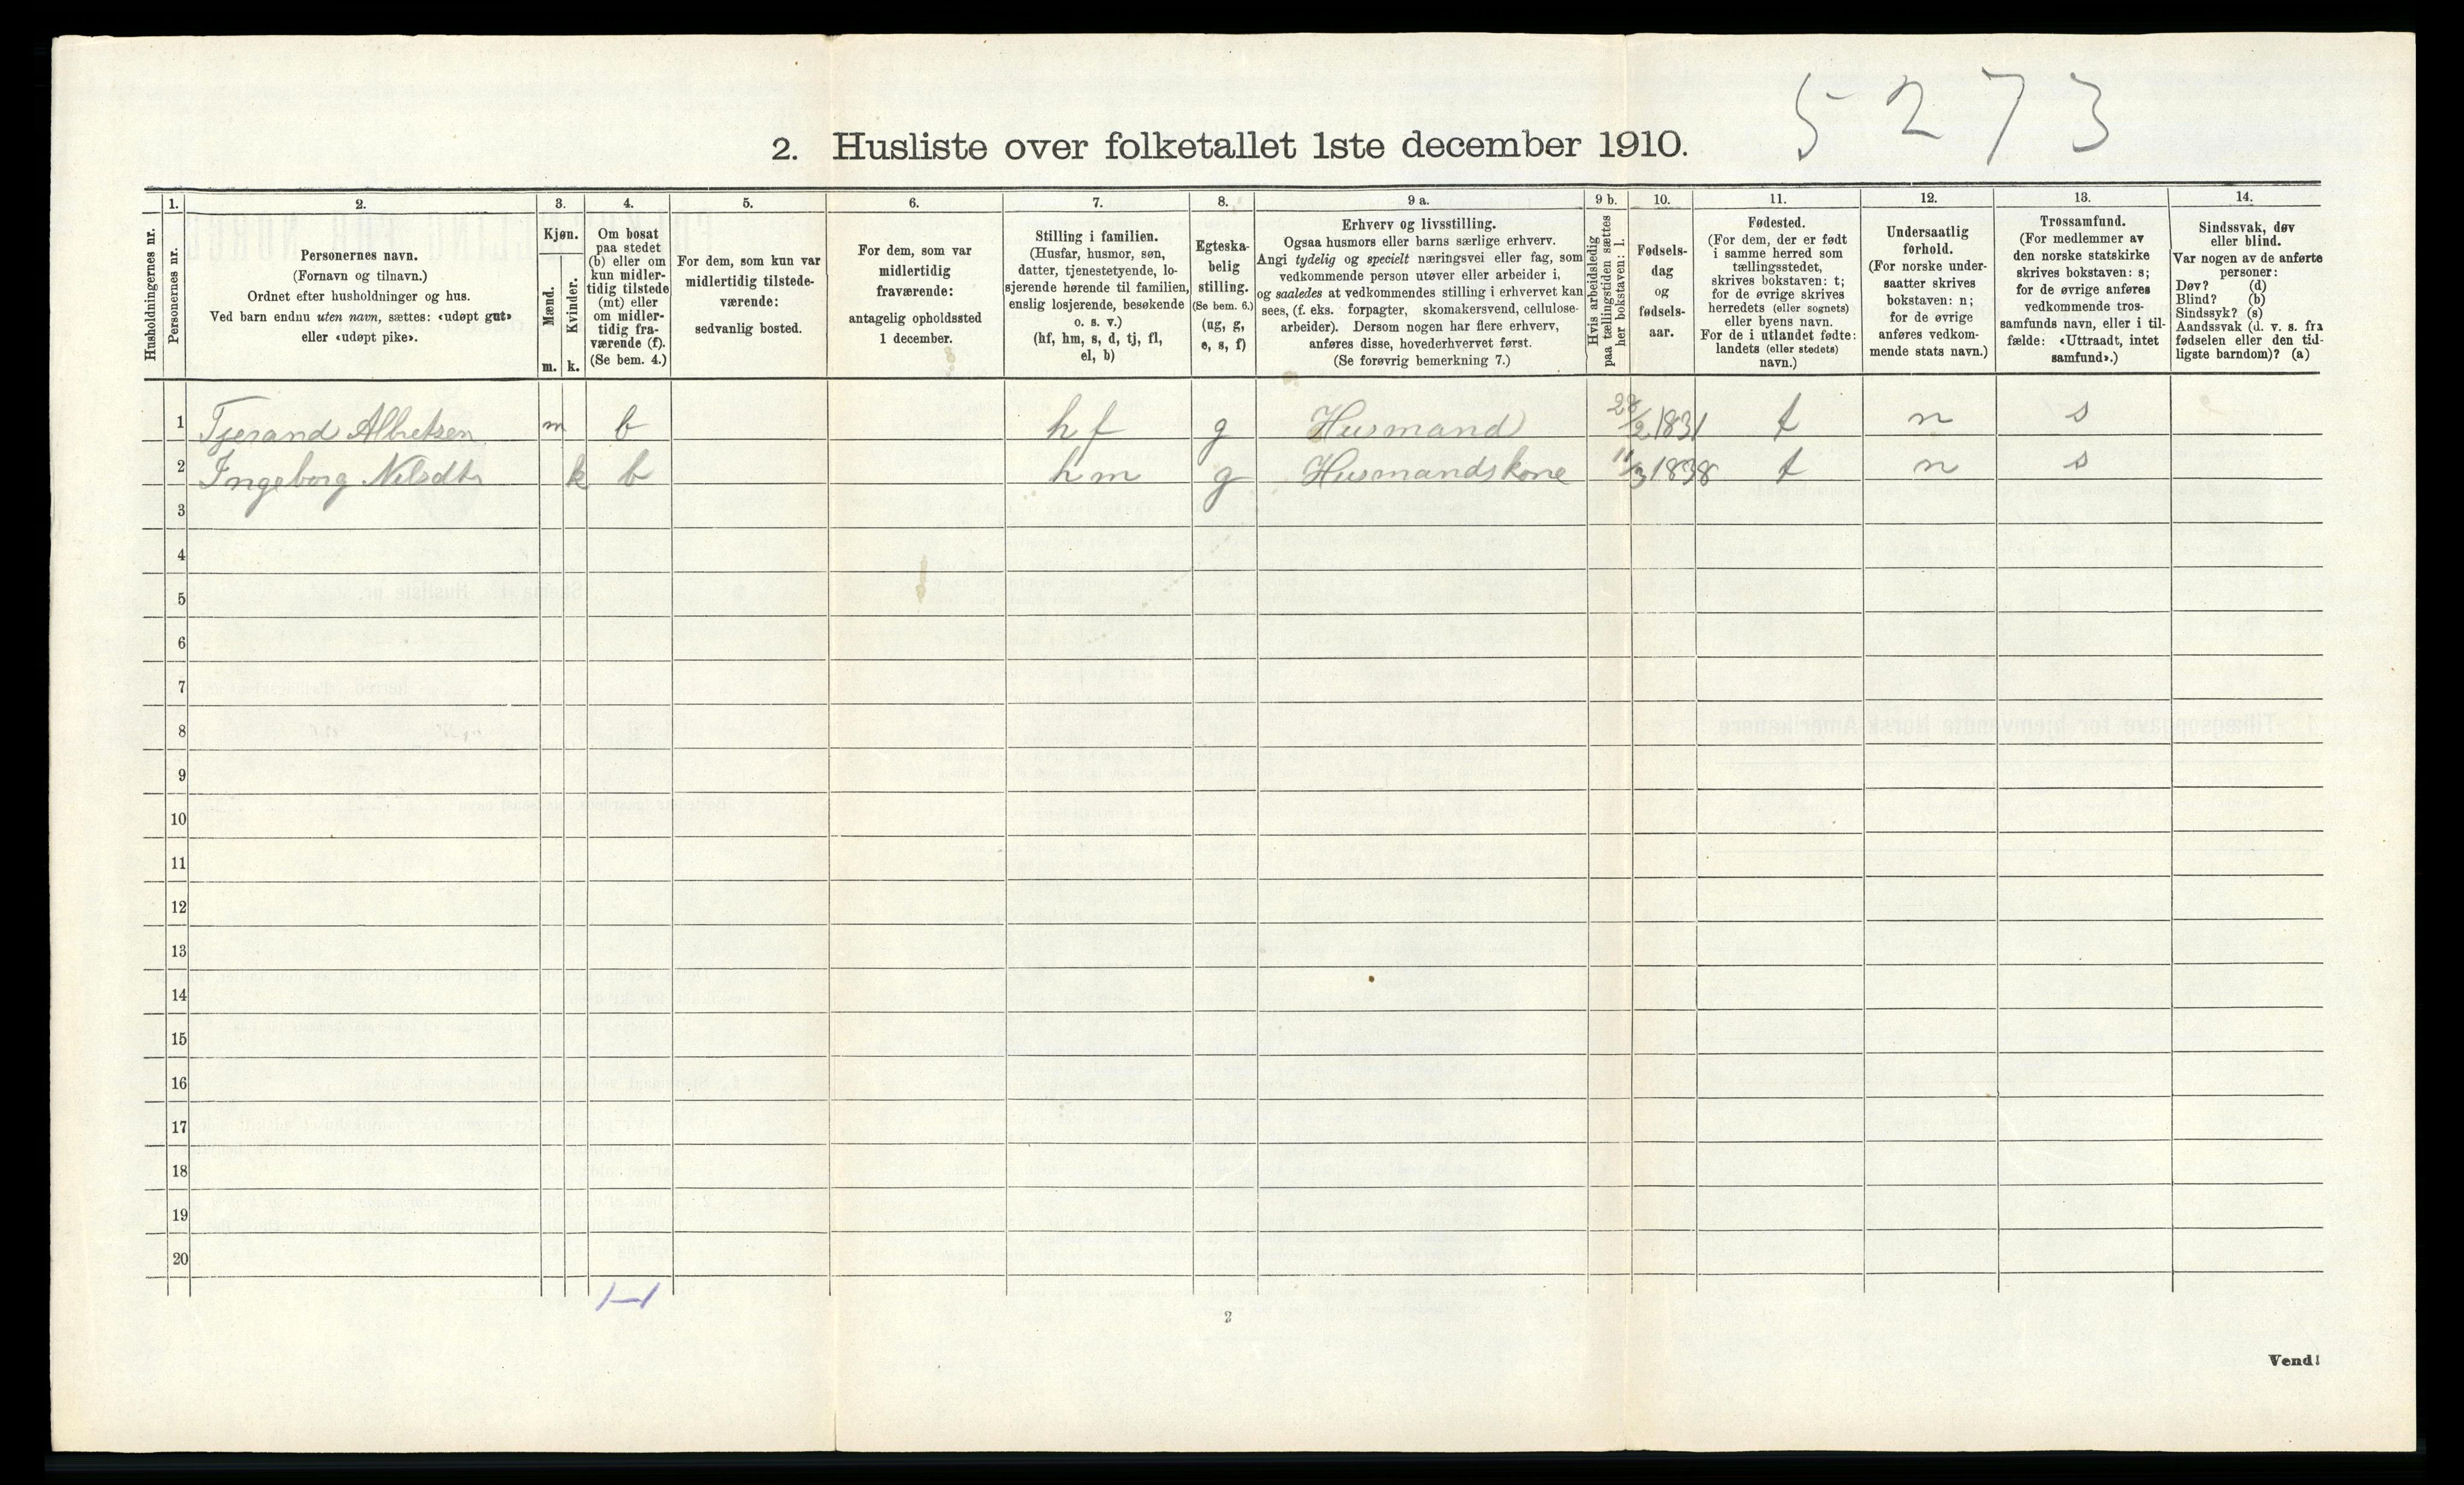 5273
2. Husliste over folketallet 1ste december 1910.
Husholdningernes nr.
1.
Personernes nr.
2.
Personernes navn.
(Fornavn og tilnavn.)
Ordnet efter husholdninger og hus.
Ved barn endnu uten navn, sættes: «udøpt gut»
eller «udøpt pike».
3.
Kjøn.
Mænd.
Kvinder.
m.
k.
4.
Om bosat
paa stedet
(b) eller om
kun midler-
tidig tilstede
(mt) eller
om midler-
tidig fra-
værende (f).
(Se bem. 4.)
5.
For dem, som kun var
midlertidig tilstede-
værende:
sedvanlig bosted.
6.
For dem, som var
midlertidig
fraværende:
antagelig opholdssted
1 december.
7.
Stilling i familien.
(Husfar, husmor, søn,
datter, tjenestetyende, lo-
sjerende hørende til familien,
enslig losjerende, besøkende
o. s. v.)
(hf, hm, s, d, tj, fl,
el, b)
8.
Egteska-
belig
stilling.
(Se bem. 6.)
(ug, g,
e, s, f)
9 a.
Erhverv og livsstilling.
Ogsaa husmors eller barns særlige erhverv.
Angi tydelig og specielt næringsvei eller fag, som
vedkommende person utøver eller arbeider i,
og saaledes at vedkommendes stilling i erhvervet kan
sees, (f. eks. forpagter, skomakersvend, cellulose-
arbeider). Dersom nogen har flere erhverv,
anføres disse, hovederhvervet først.
(Se forøvrig bemerkning 7.)
9 b.
Hvis arbeidsledig
paa tællingstiden sættes
her bokstaven: l.
10.
Fødsels-
dag
og
fødsels-
aar.
11.
Fødested.
(For dem, der er født
i samme herred som
tællingsstedet,
skrives bokstaven: t;
for de øvrige skrives
herredets (eller sognets)
eller byens navn.
For de i utlandet fødte:
landets (eller stedets)
navn.)
12.
Undersaatlig
forhold.
(For norske under-
saatter skrives
bokstaven: n;
for de øvrige
anføres vedkom-
mende stats navn.)
13.
Trossamfund.
(For medlemmer av
den norske statskirke
skrives bokstaven: s;
for de øvrige anføres
vedkommende tros-
samfunds navn, eller i til-
fælde: «Uttraadt, intet
samfund».)
14.
Sindssvak, døv
eller blind.
Var nogen av de anførte
personer:
Døv? (d)
Blind? (b)
Sindssyk? (s)
Aandssvak (d. v. s. fra
fødselen eller den tid-
ligste barndom)? (a)
1 Tjerand Albretsen m b hf g Husmand 28/2 1831 t n s
2 Ingeborg Nilsdtr k b hm g Husmandskone 11/3 1838 t n s
3
4
5
6
7
8
9
10
11
12
13
14
15
16
17
18
19
20
1-1
2
Vend!